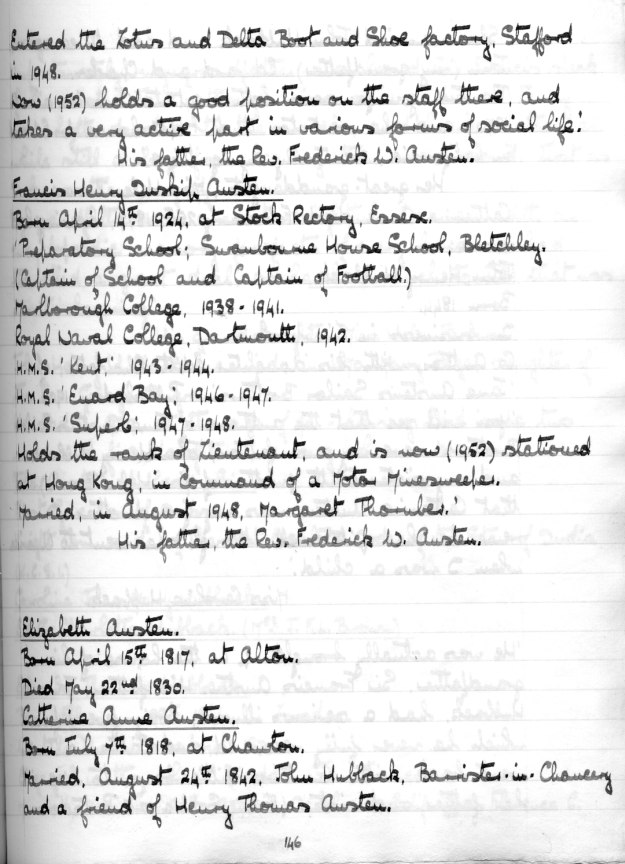 Entered the Lotus and Delta Boot and Shoe factory, Stafford
in 1948.
Now (1952) holds a good position on the staff there, and
takes a very active part in various forms of social life.'
His father, the Rev. Frederick W. Austen.
Francis Henry Inskip Austen.
Born April 14th 1924, at Stock Rectory, Essex.
'Preparatory School; Swanbourne House School, Bletchley.
(Captain of School and Captain of Football.)
Marlborough College, 1938-1941.
Royal Naval College, Dartmouth, 1942.
H.M.S. 'Kent,' 1943-1944.
H.M.S. 'Enard Bay; 1946-1947.
H.M.S. 'Superb; 1947-1948.
Holds the rank of Lieutenant, and is now (1952) stationed
at Hong Kong in Command of a Motor Minesweeper.
Married, in August 1948, Margaret Thornber.'
His father, the Rev. Frederick W. Austen.
Elizabeth Austen.
Born April 15th 1817, at Alton.
Died May 22nd 1830.
Catherine Anne Austen.
Born July 7th 1818, at Chawton.
Married, August 24th 1842, John Hubback, Barrister-in-Chancery
and a friend of Henry Thomas Austen.
146